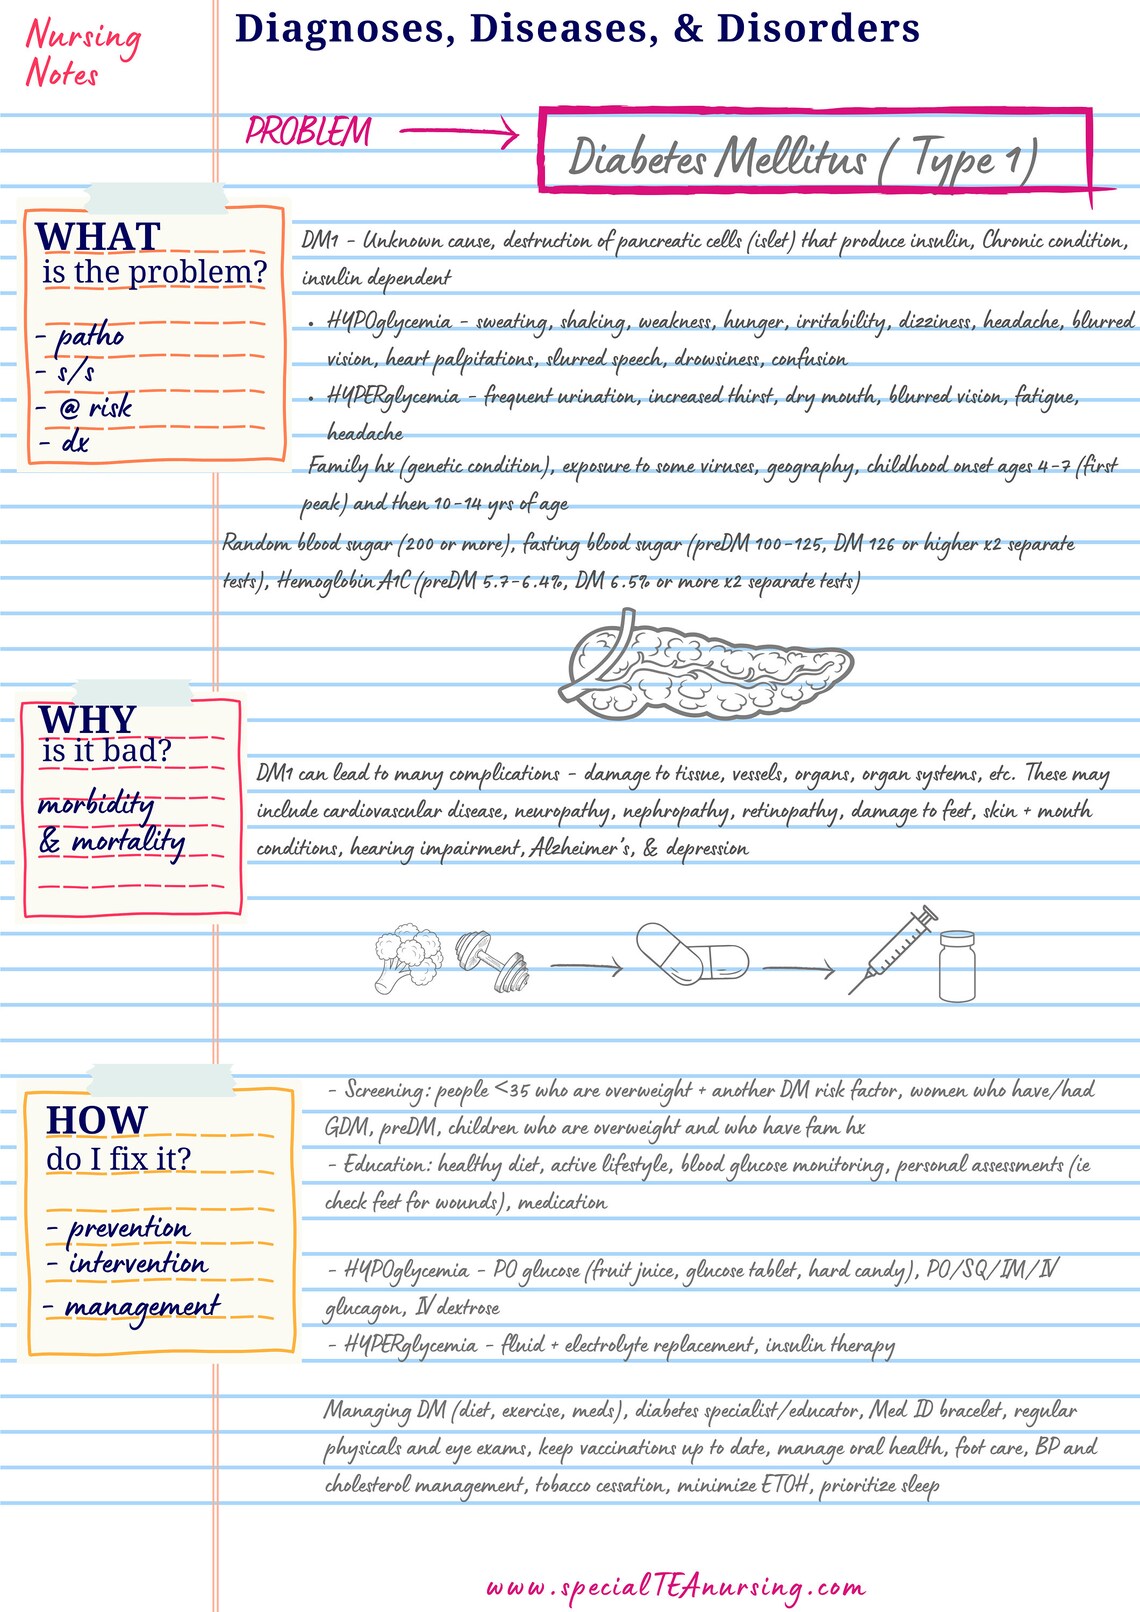 Nursing
Notes
Diagnoses, Diseases, & Disorders
PROBLEM
Diabetes Mellitus ( Type 1)
WHAT
is the problem?
- patho
- s/s
- @ risk
- dx
DM1 - Unknown cause, destruction of pancreatic cells (islet) that produce insulin, Chronic condition,
insulin dependent
• HYPOglycemia - sweating, shaking, weakness, hunger, irritability, dizziness, headache, blurred
vision, heart palpitations, slurred speech, drowsiness, confusion
• HYPERglycemia - frequent urination, increased thirst, dry mouth, blurred vision, fatigue,
headache
Family hx (genetic condition), exposure to some viruses, geography, childhood onset ages 4-7 (first
peak) and then 10-14 yrs of age
Random blood sugar (200 or more), fasting blood sugar (preDM 100-125, DM 126 or higher x2 separate
tests), Hemoglobin A1C (preDM 5.7-6.4%, DM 6.5% or more x2 separate tests)
WHY
is it bad?
morbidity
& mortality
DM1 can lead to many complications - damage to tissue, vessels, organs, organ systems, etc. These may
include cardiovascular disease, neuropathy, nephropathy, retinopathy, damage to feet, skin + mouth
conditions, hearing impairment, Alzheimer's, & depression
HOW
do I fix it?
- prevention
- intervention
- management
- Screening: people <35 who are overweight + another DM risk factor, women who have/had
GDM, preDM, children who are overweight and who have fam hx
- Education: healthy diet, active lifestyle, blood glucose monitoring, personal assessments (ie
check feet for wounds), medication
- HYPOglycemia - PO glucose (fruit juice, glucose tablet, hard candy), PO/SQ/IM/IV
glucagon, IV dextrose
- HYPERglycemia - fluid + electrolyte replacement, insulin therapy
Managing DM (diet, exercise, meds), diabetes specialist/educator, Med ID bracelet, regular
physicals and eye exams, keep vaccinations up to date, manage oral health, foot care, BP and
cholesterol management, tobacco cessation, minimize ETOH, prioritize sleep
www.specialTEAnursing.com